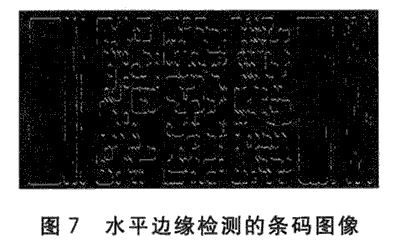 图 7 水平边缘检测的条码图像